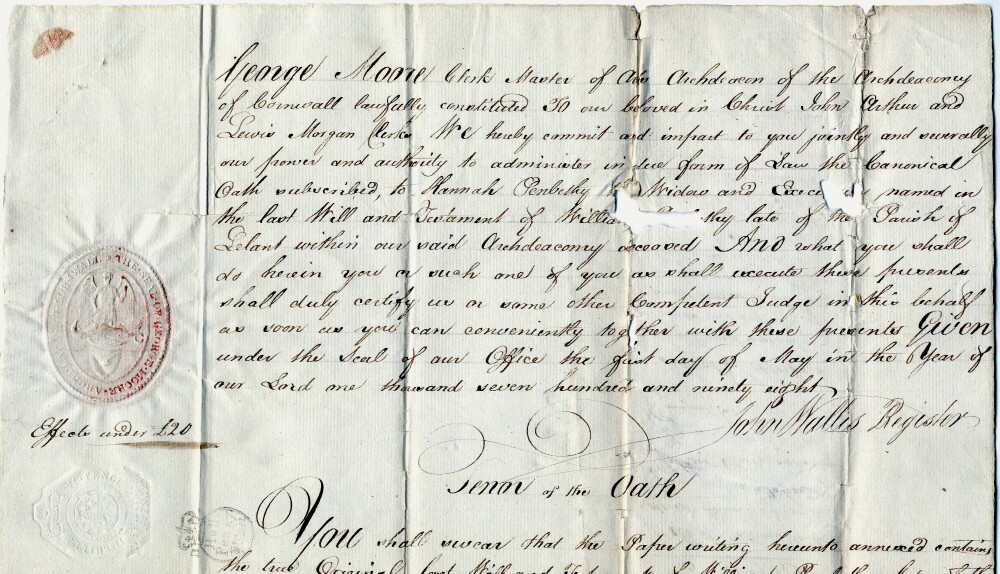 George Moore Clerk Master of Arts Archdeacon of the Archdeaconry
of Cornwall lawfully constituted To our beloved in Christ John Arthur and
Lewis Morgan Clerks We hereby commit and impart to you jointly and severally
our power and authority to administer in due form of Law the Canonical
Oath subscribed, to Hannah Penberthy Widow and named in
the last Will and Testament of late of the Parish of
Lelant within our said Archdeaconry deceased And what you shall
do herein you or such one of you as shall execute these presents
shall duly certify us or some other Competent Judge in this behalf
as soon as you can conveniently together with these presents Given
under the Seal of our Office the first day of May in the Year of
our Lord one thousand seven hundred and ninety eight
John Wallis Register
THE SEAL OF GEORGE MOORE
Effects under £20
Tenor of the Oath
You shall swear that the Paper writing hereunto annexed contains
the true Original last Will and